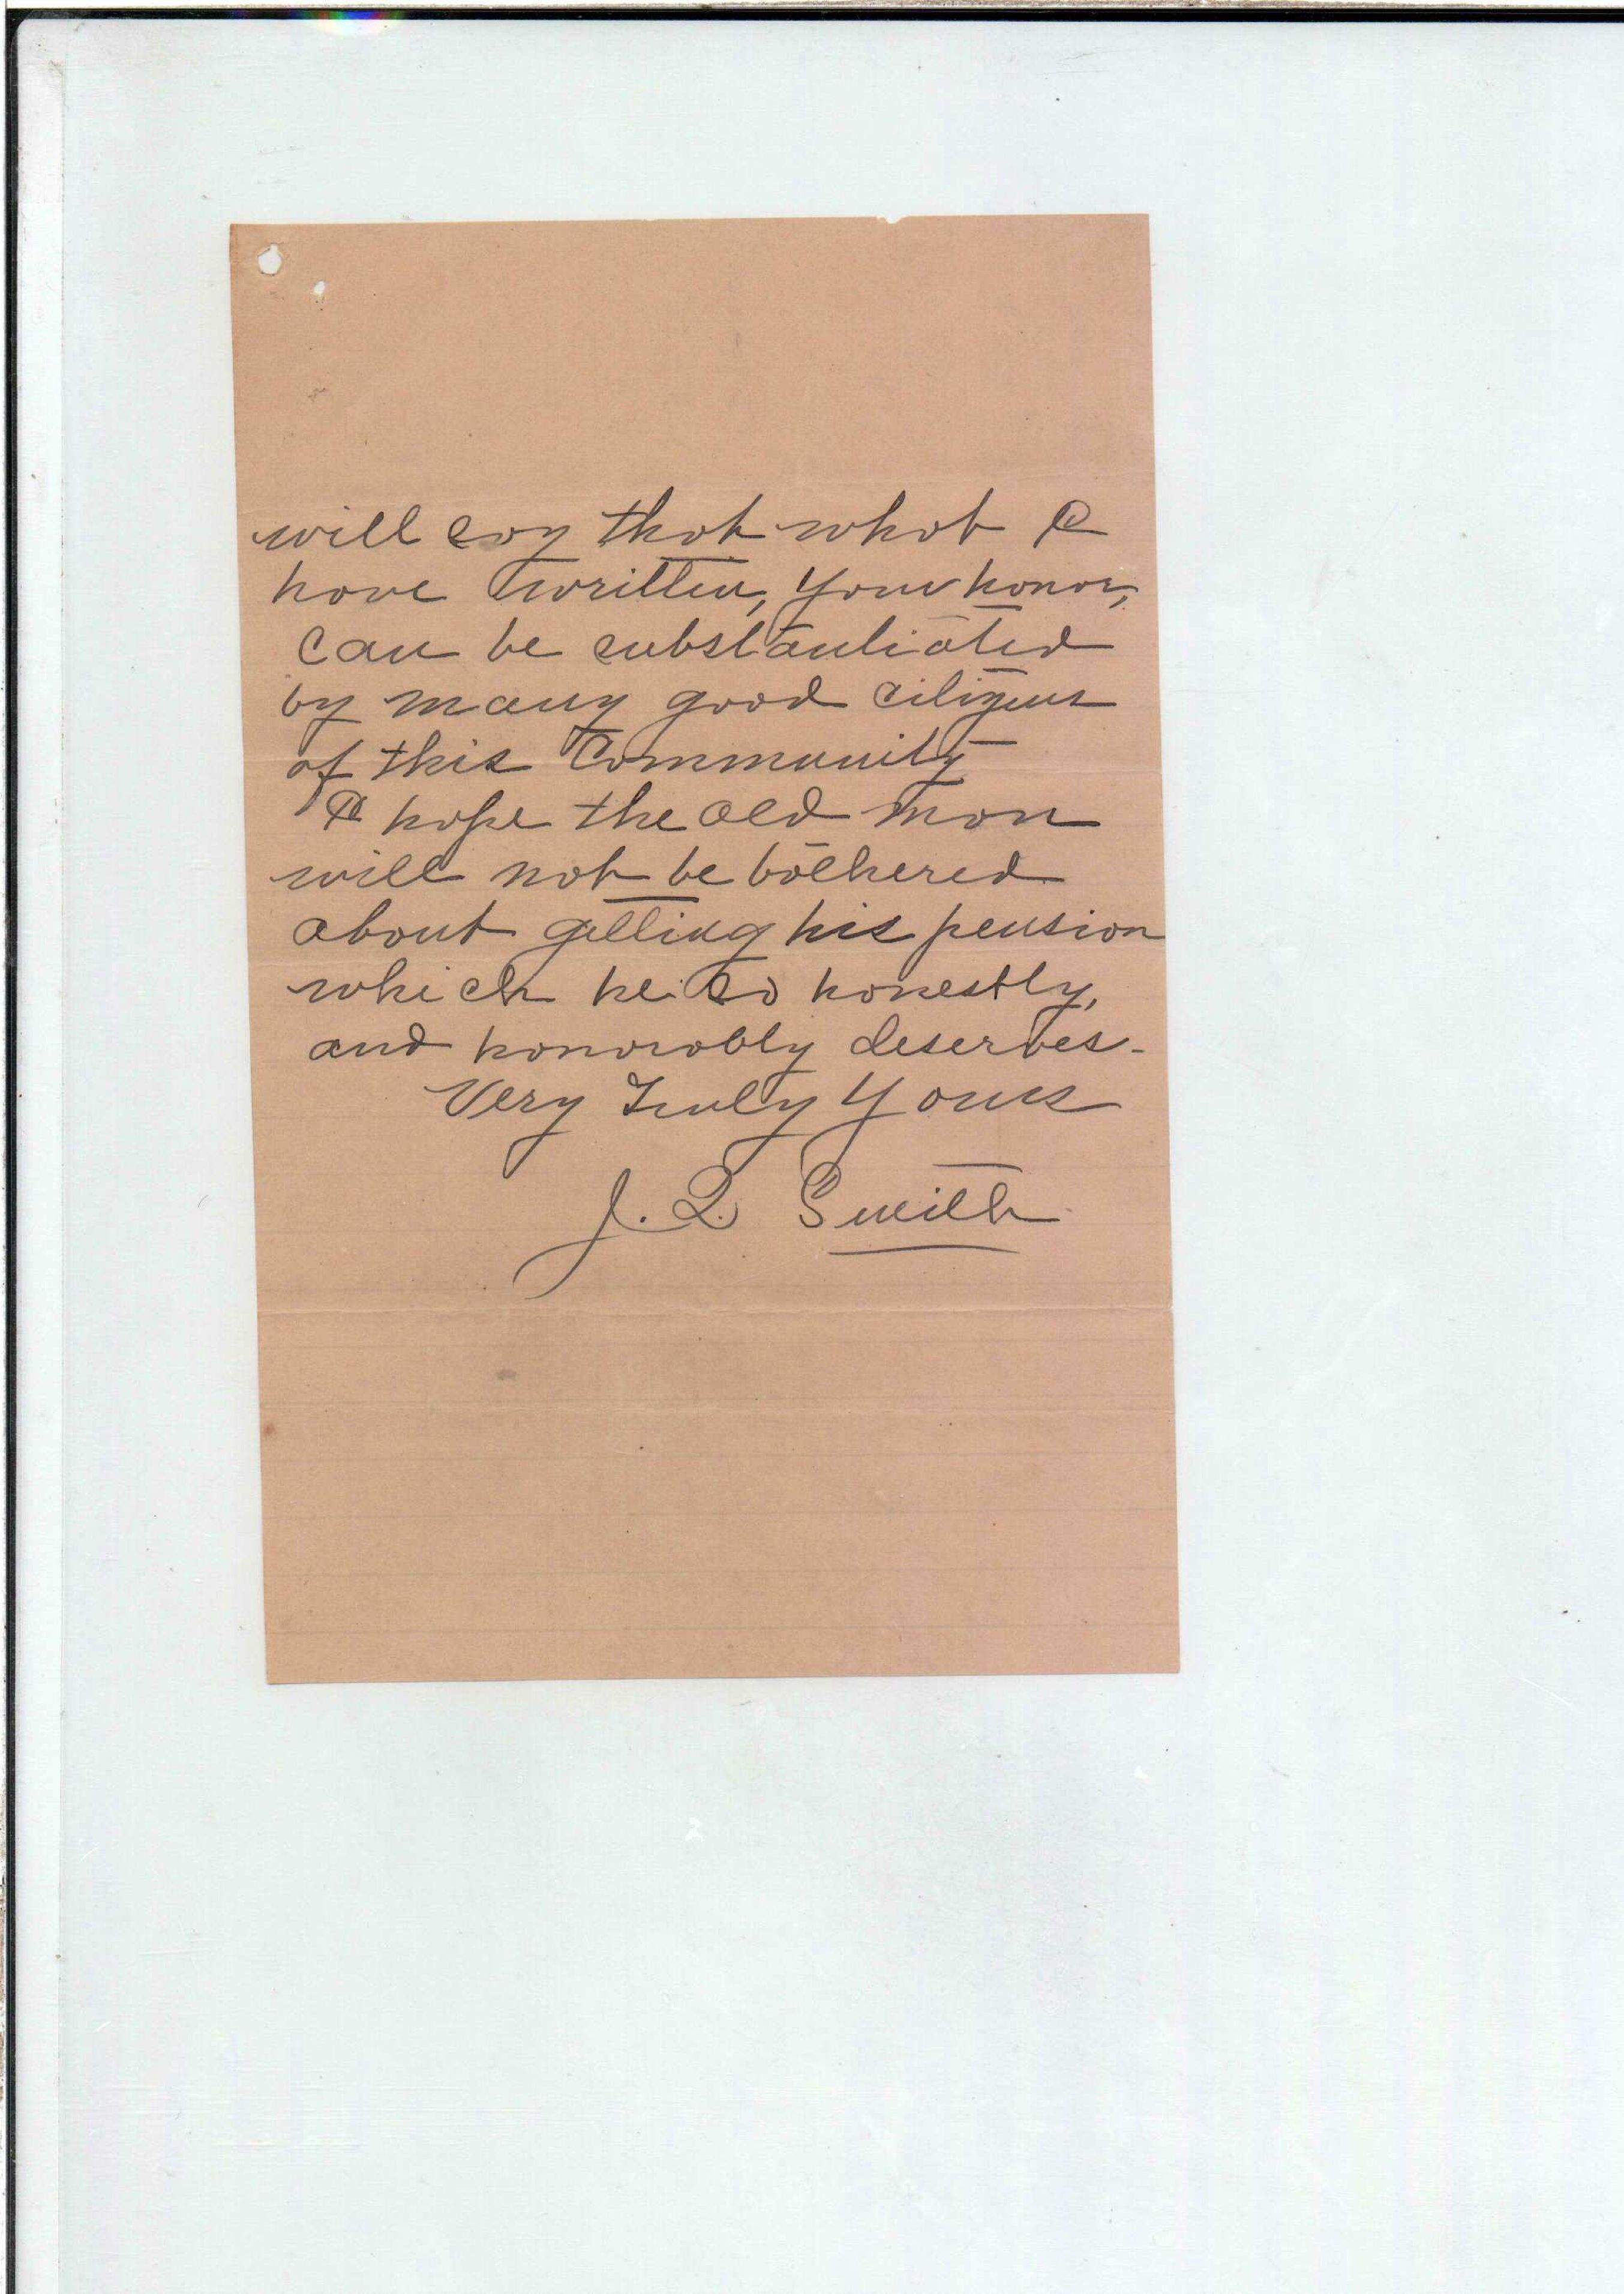 will say that what I
have written, your honor,
can be substantiated
by many good citizens
of this Community
I hope the old man
will not be bothered
about getting his pension
which he so honestly,
and honorably deserves-
Very Truly Yours
J. Q. Smith